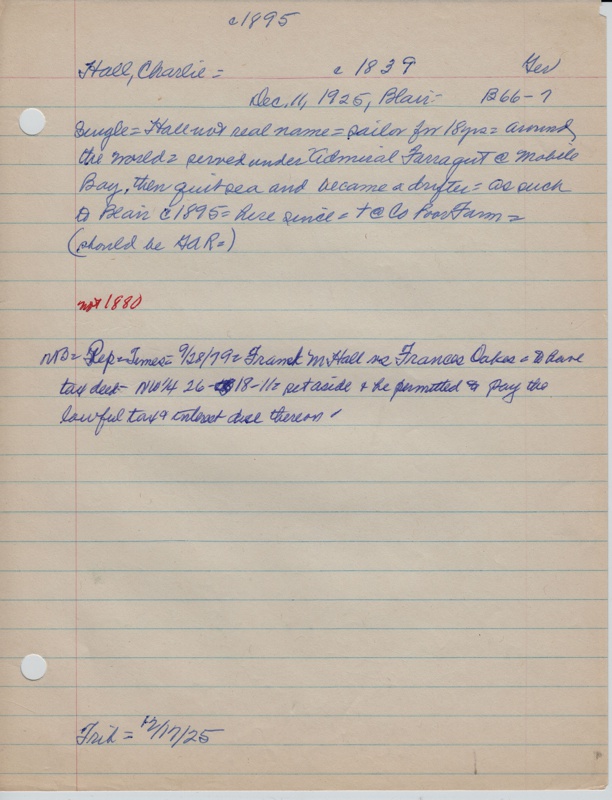 c1895
Hall, Charlie = c 1839 Ger
Dec. 11, 1925, Blair = B66-7
Single = Hall not real name = sailor for 18yrs = around
the world = served under Admiral Farragut @ Mobile
Bay, then quit sea and became a drifter = as such
to Blair c1895 = here since = + @ Co Poor Farm =
(should be GAR =)
not 1880
NB = Rep = Times = 9/28/79 = Frank M Hall vs Frances Oakes = to have
tax deed = NW1/4 26-18-11 = set aside & he permitted to pay the
lawful tax & interest due thereon
Trib = 12/17/25